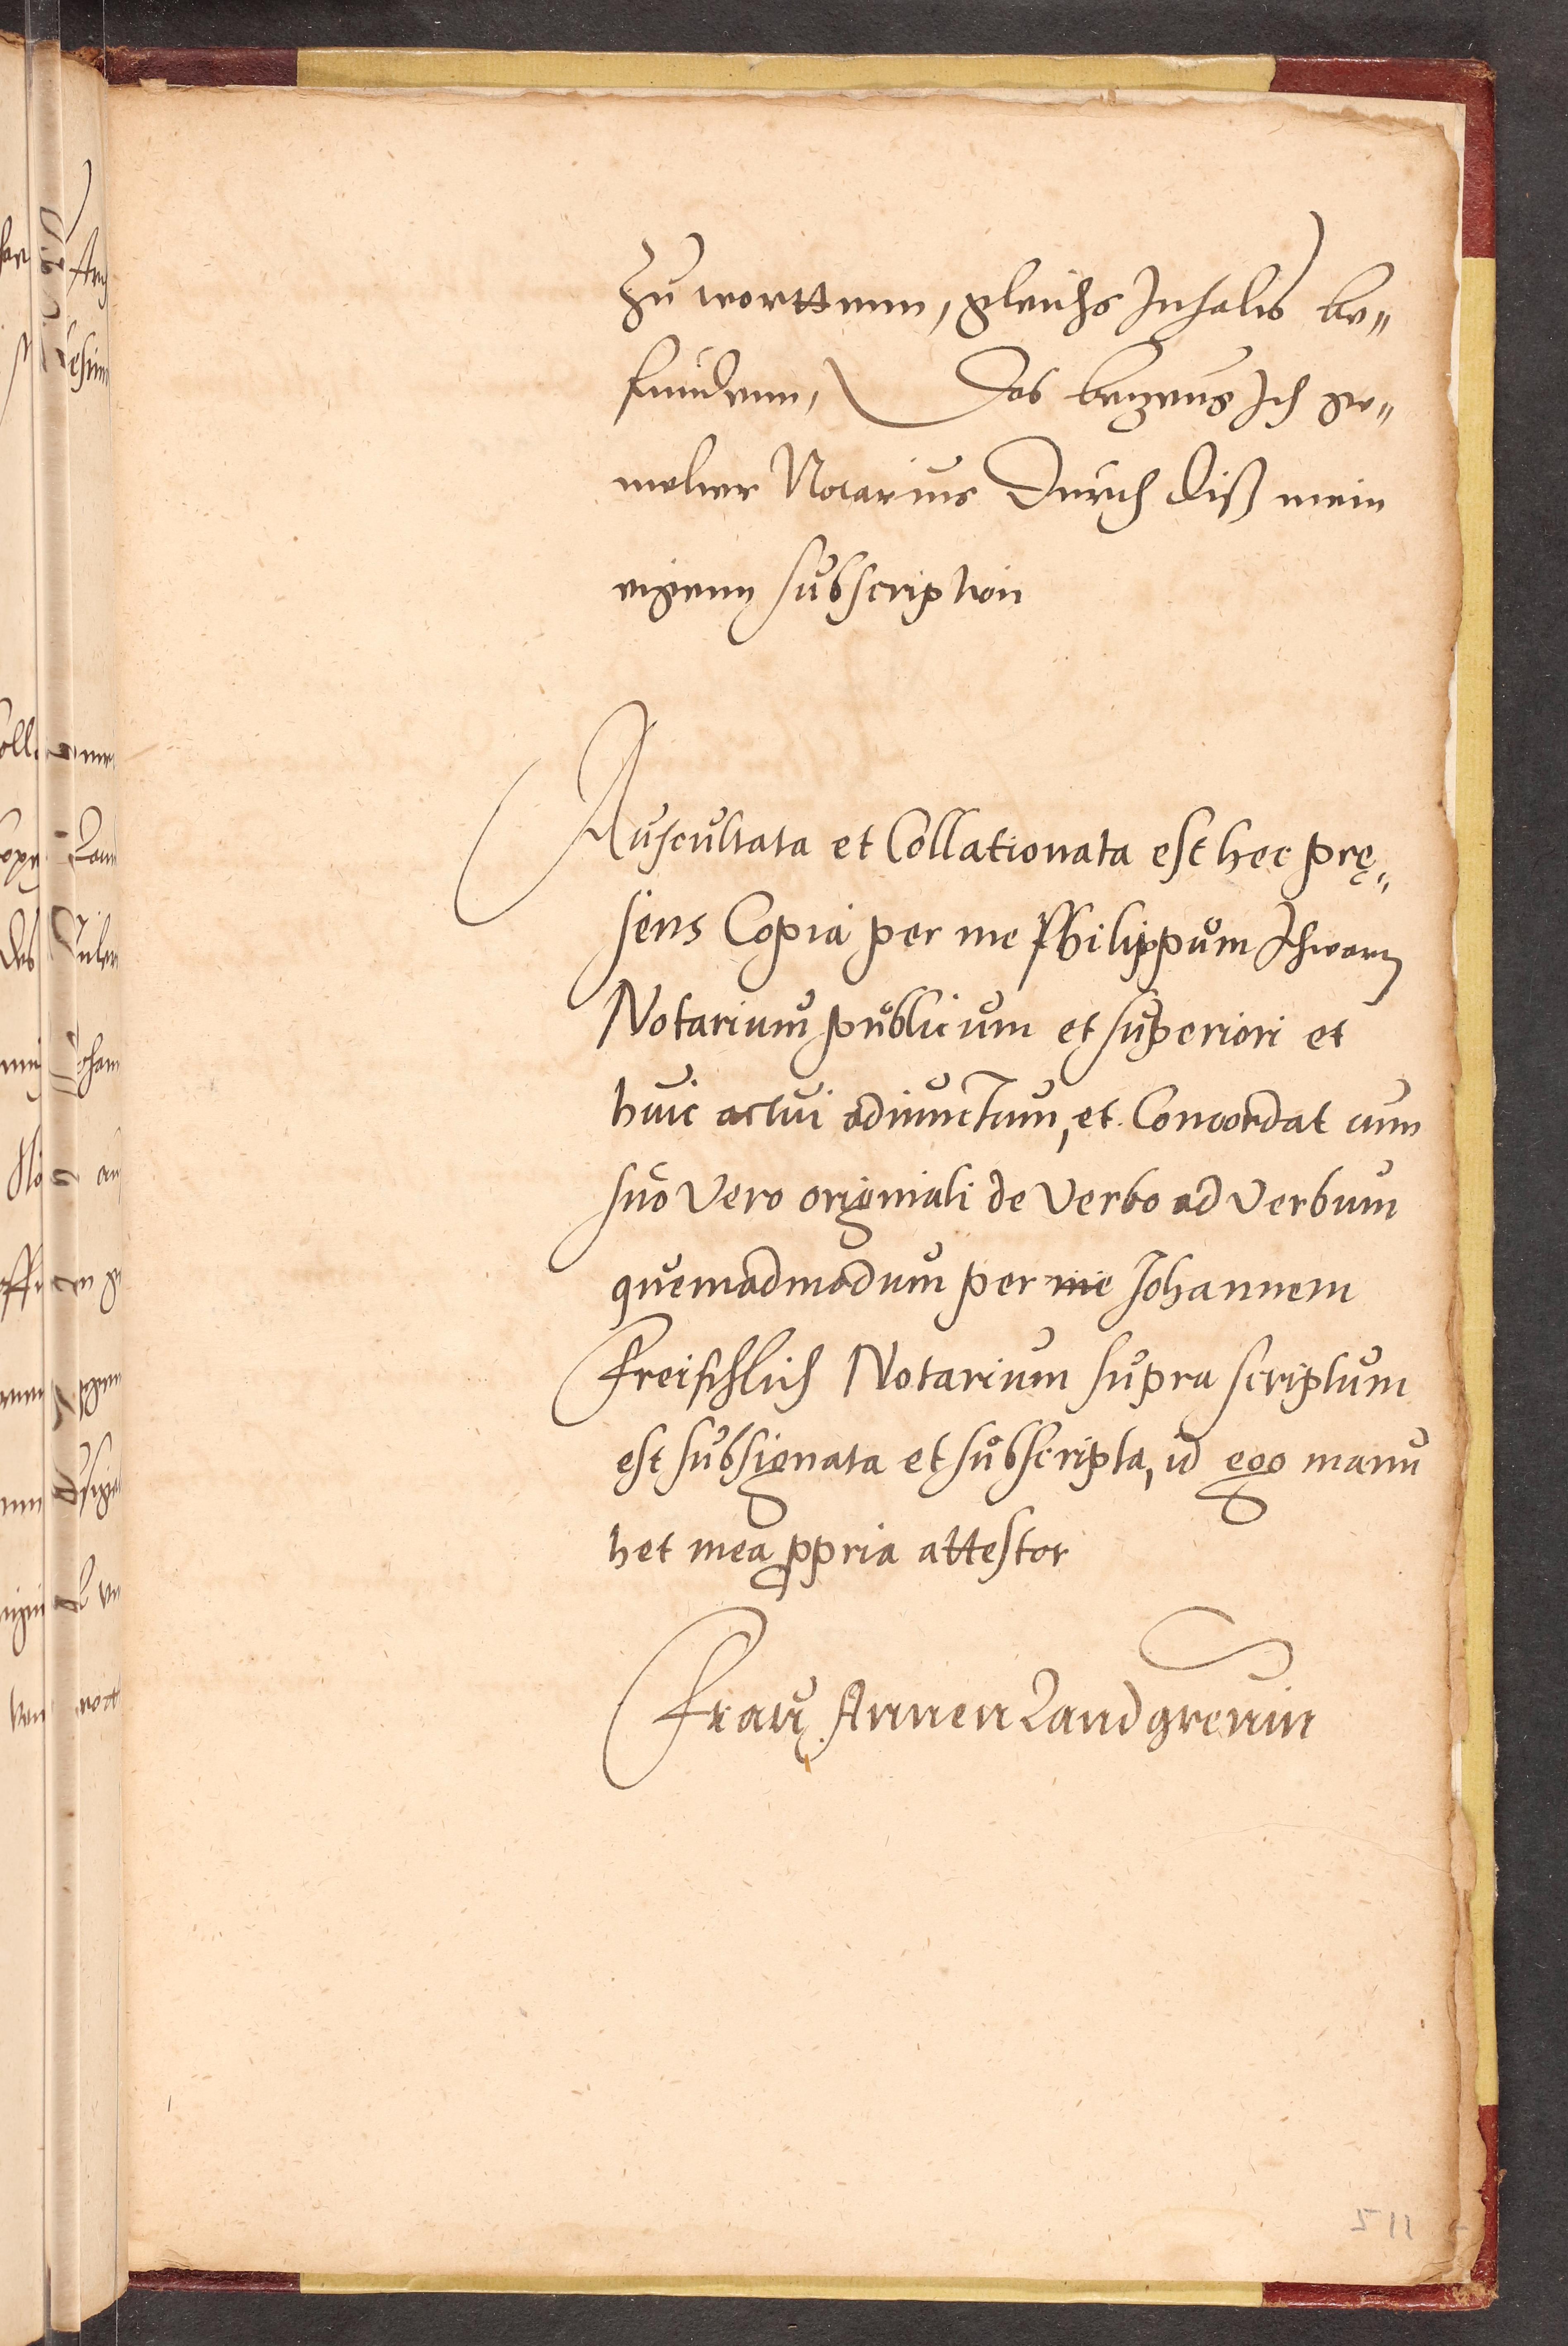 Zu wortten, gleichs Inhalts be„
funden, Das bezeug Ich ge„
melter Notarius Durch diß mein
eigenn subscription
Auscultata et Collationata est hec prę„
sens Copia per me Philippum Schwartz
Notarium publicum et superiori et
huic actui adiunctum, et Concordat cum
suo vero originali de verbo ad verbum
quemadmodum per me Johannem
Freischlich Notarium supra scriptum
est subsignata et subscripta, id ego manu
het mea ppria attestor
Frau Annen Landgrevin
511